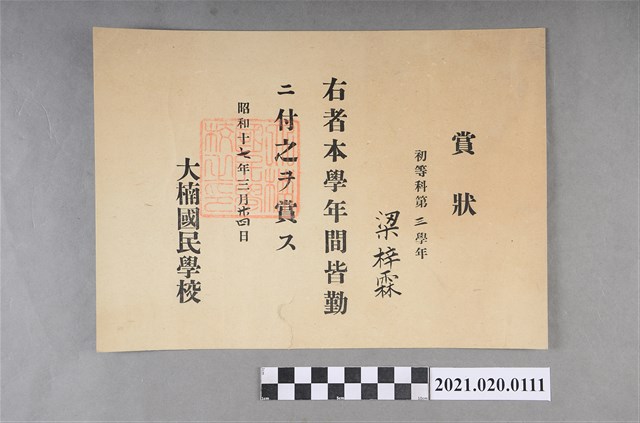 賞狀
初等科第三學年
梁梓霖
右者本學年間皆勤
ニ付之ヲ賞ス
昭和十七年三月廿四日
大楠國民學校
2021.020.0111